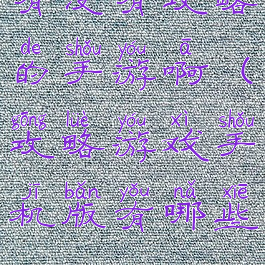 有没有攻略
de shǒu yóu ā
的手游啊（
gōng lüè yóu xì shǒu
攻略游戏手
jī bǎn yǒu nǎ xiē
机版有哪些